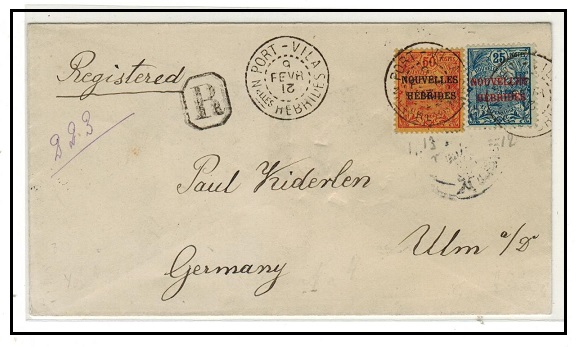 Registered
R
223
PORT-VILA
5
FEVR
12
Nlles HEBRIDES
50
NOUVELLES
HÉBRIDES
25
NOUVELLES
HÉBRIDES
Paul Kiderlen
Ulm a/D
Germany